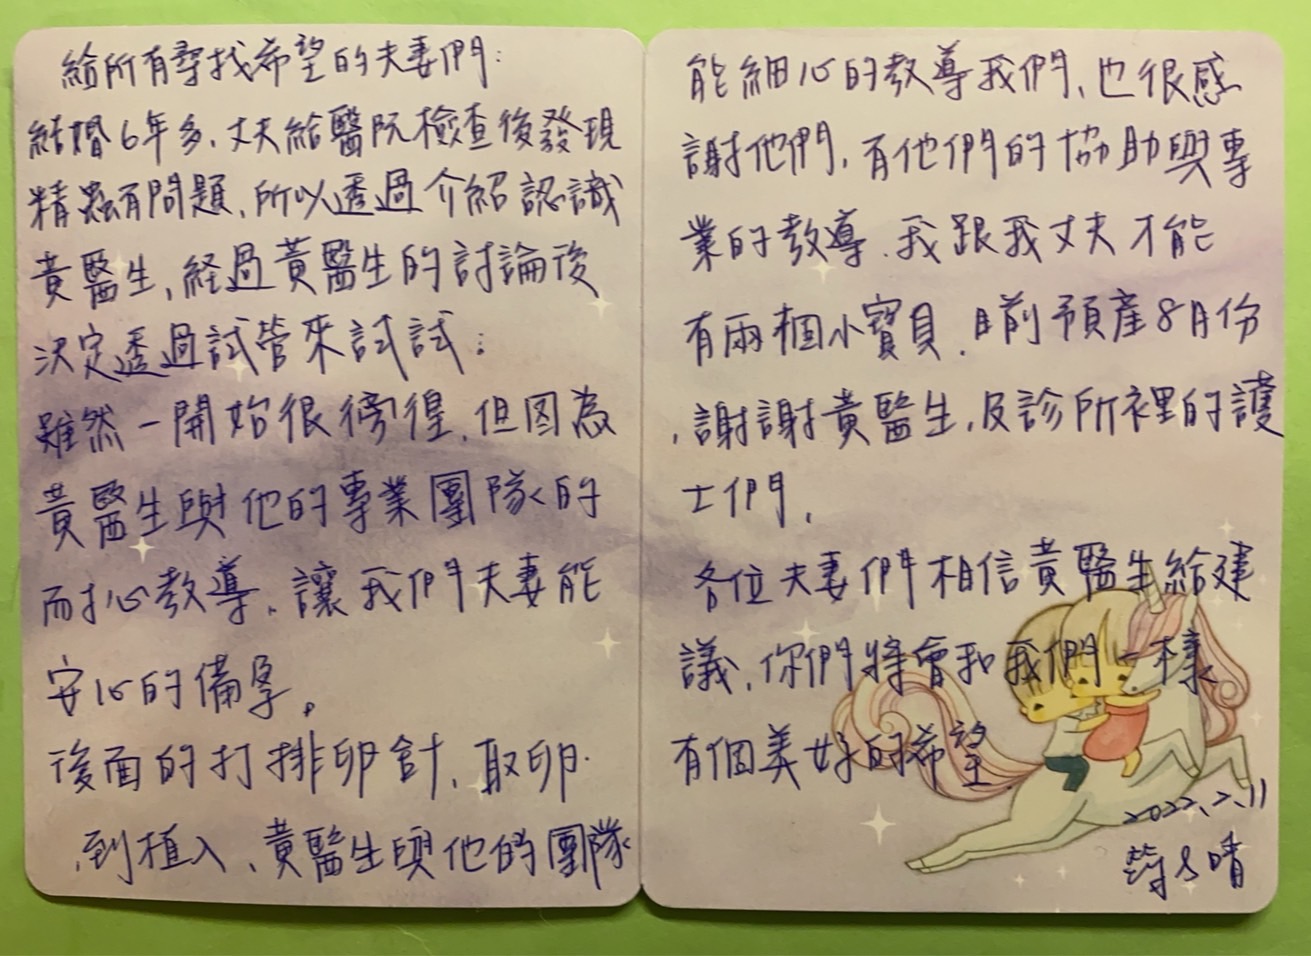 給所有尋找希望的夫妻們:
結婚6年多、丈夫給醫院檢查後發現
精蟲有問題、所以透過介紹認識
黃醫生、經過黃醫生的討論後
決定透過試管來試試;
雖然一開始很徬徨、但因為
黃醫生與他的專業團隊的
而扒心教導、讓我們夫妻能
安心的備孕。
後面的打排卵針、取卵.
、到植入、黃醫生與他的團隊
能細心的教導我們、也很感
謝他們、有他們的協助與專
業的教導、我跟我丈夫才能
有兩個小寶貝、目前預產8月份
、謝謝黃醫生、及診所裡的護
士們、
各位夫妻們相信黃醫生給建
議、你們將會和我們一樣
有個美好的希望
2022、2、11